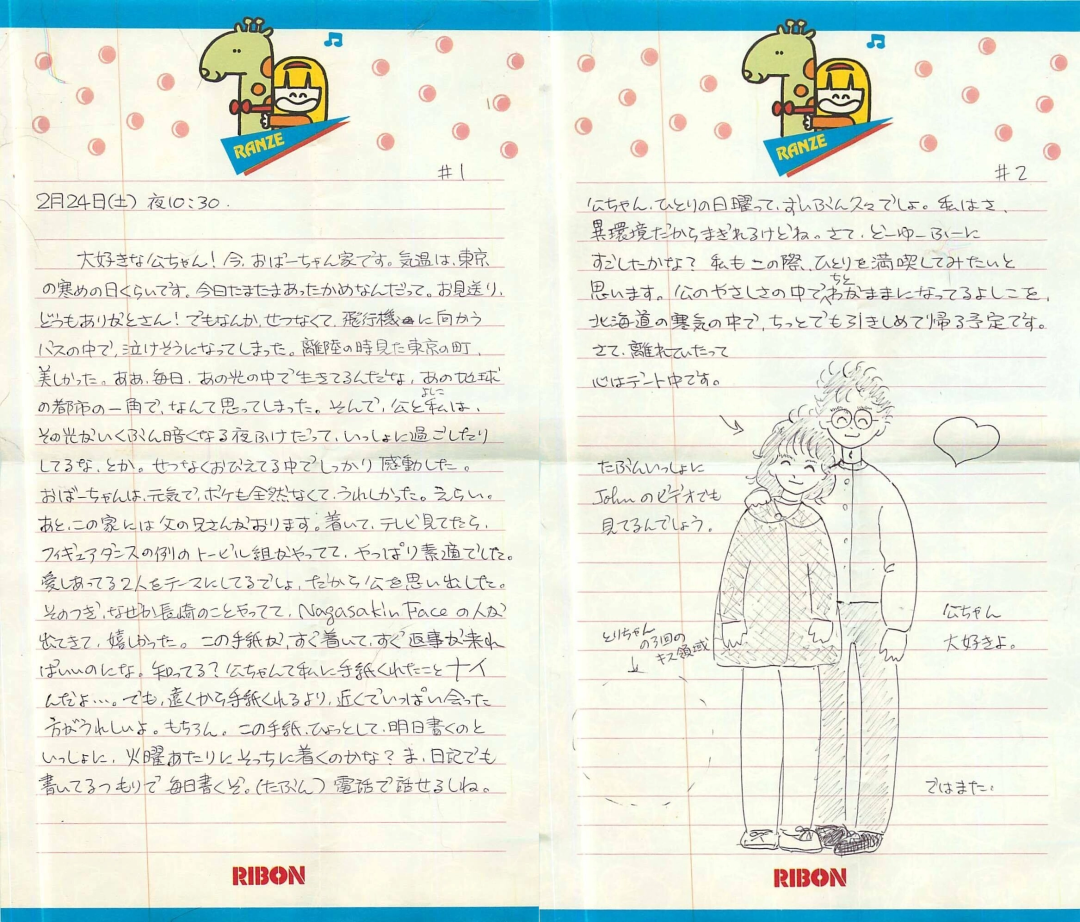 RANZE
#1
2月24日(土) 夜10:30.
大好きな公ちゃん!今、おばーちゃん家です。気温は、東京
の寒めの日くらいです。今日たまたまあったかめなんだって。お見送り、
どうもありがとさん!でもなんか、せつなくて、飛行機に向かう
バスの中で、泣けそうになってしまった。離陸の時見た東京の町、
美しかった。ああ、毎日、あの光の中で生きてるんだな、あの地球
の都市の一角で、なんて思ってしまった。そんで、公と私は、
よしこ
その光がいくぶん暗くなる夜ふけだって、いっしょに過ごしたり
してるな、とか。せつなくおびえてる中でしっかり感動した。
おばーちゃんは、元気で、ボケも全然なくて、うれしかった。えらい。
あと、この家には父の兄さんがおります。着いて、テレビ見てたら、
フィギュアダンスの例のトービル組がやってて、やっぱり素適でした。
愛しあってる2人をテーマにしてるでしょ、だから公を思い出した。
そのつぎ、なぜか長崎のことやってて、Nagasakin Faceの人が
出てきて、嬉しかった。この手紙が、すぐ着いて、すぐ返事が来れ
ばいいのにな。知ってる?公ちゃんて私に手紙くれたことナイ
んだよ…。でも、遠くから手紙くれるより、近くでいっぱい会った
方がうれしいよ。もちろん。この手紙、ひょっとして、明日書くのと
いっしょに、火曜あたりにそっちに着くのかな?ま、日記でも
書いてるつもりで毎日書くぞ。(たぶん)電話で話せるしね。
RIBON
RANZE
#2
公ちゃん、ひとりの日曜って、ずいぶん久々でしょ。私はさ、
異環境だからまぎれるけどね。さて、どーゆーふーに
すごしたかな?私もこの際、ひとりを満喫してみたいと
思います。公のやさしさの中で、ちとわがままになってるよしこを、
北海道の寒気の中で、ちっとでも引きしめて帰る予定です。
さて、離れていたって
心はテント中です。
たぶんいっしょに
Johnのビデオでも
見てるんでしょう。
とりちゃん
の3回の
キス領域
公ちゃん
大好きよ。
ではまた.
RIBON